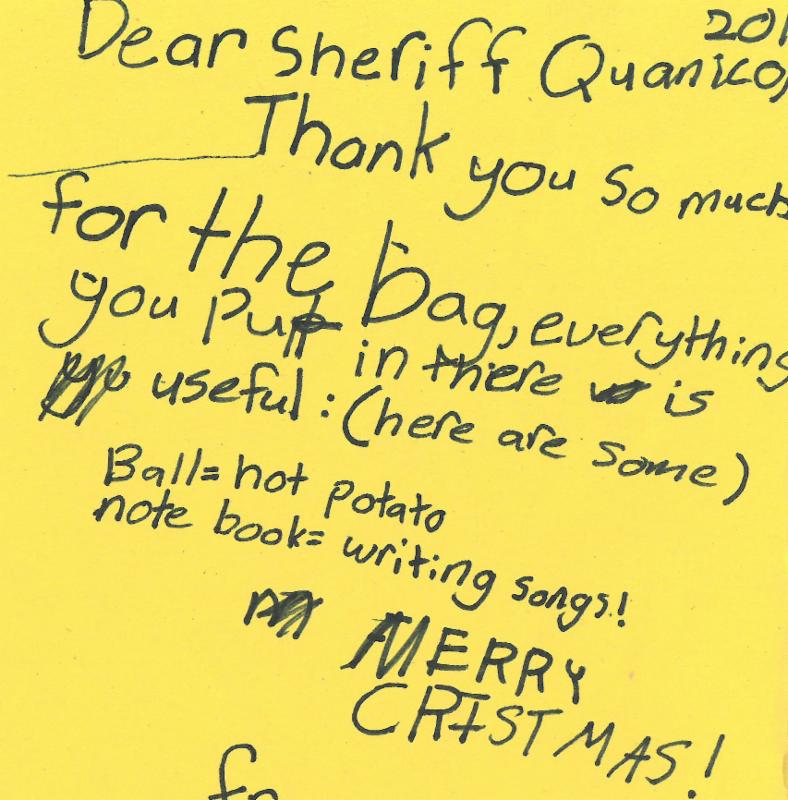 201
Dear Sheriff Quanico,
Thank you so much
for the bag, everything
you put in there is
useful: (here are some)
Ball= hot potato
note book= writing songs!
MERRY
CRISTMAS!
fr